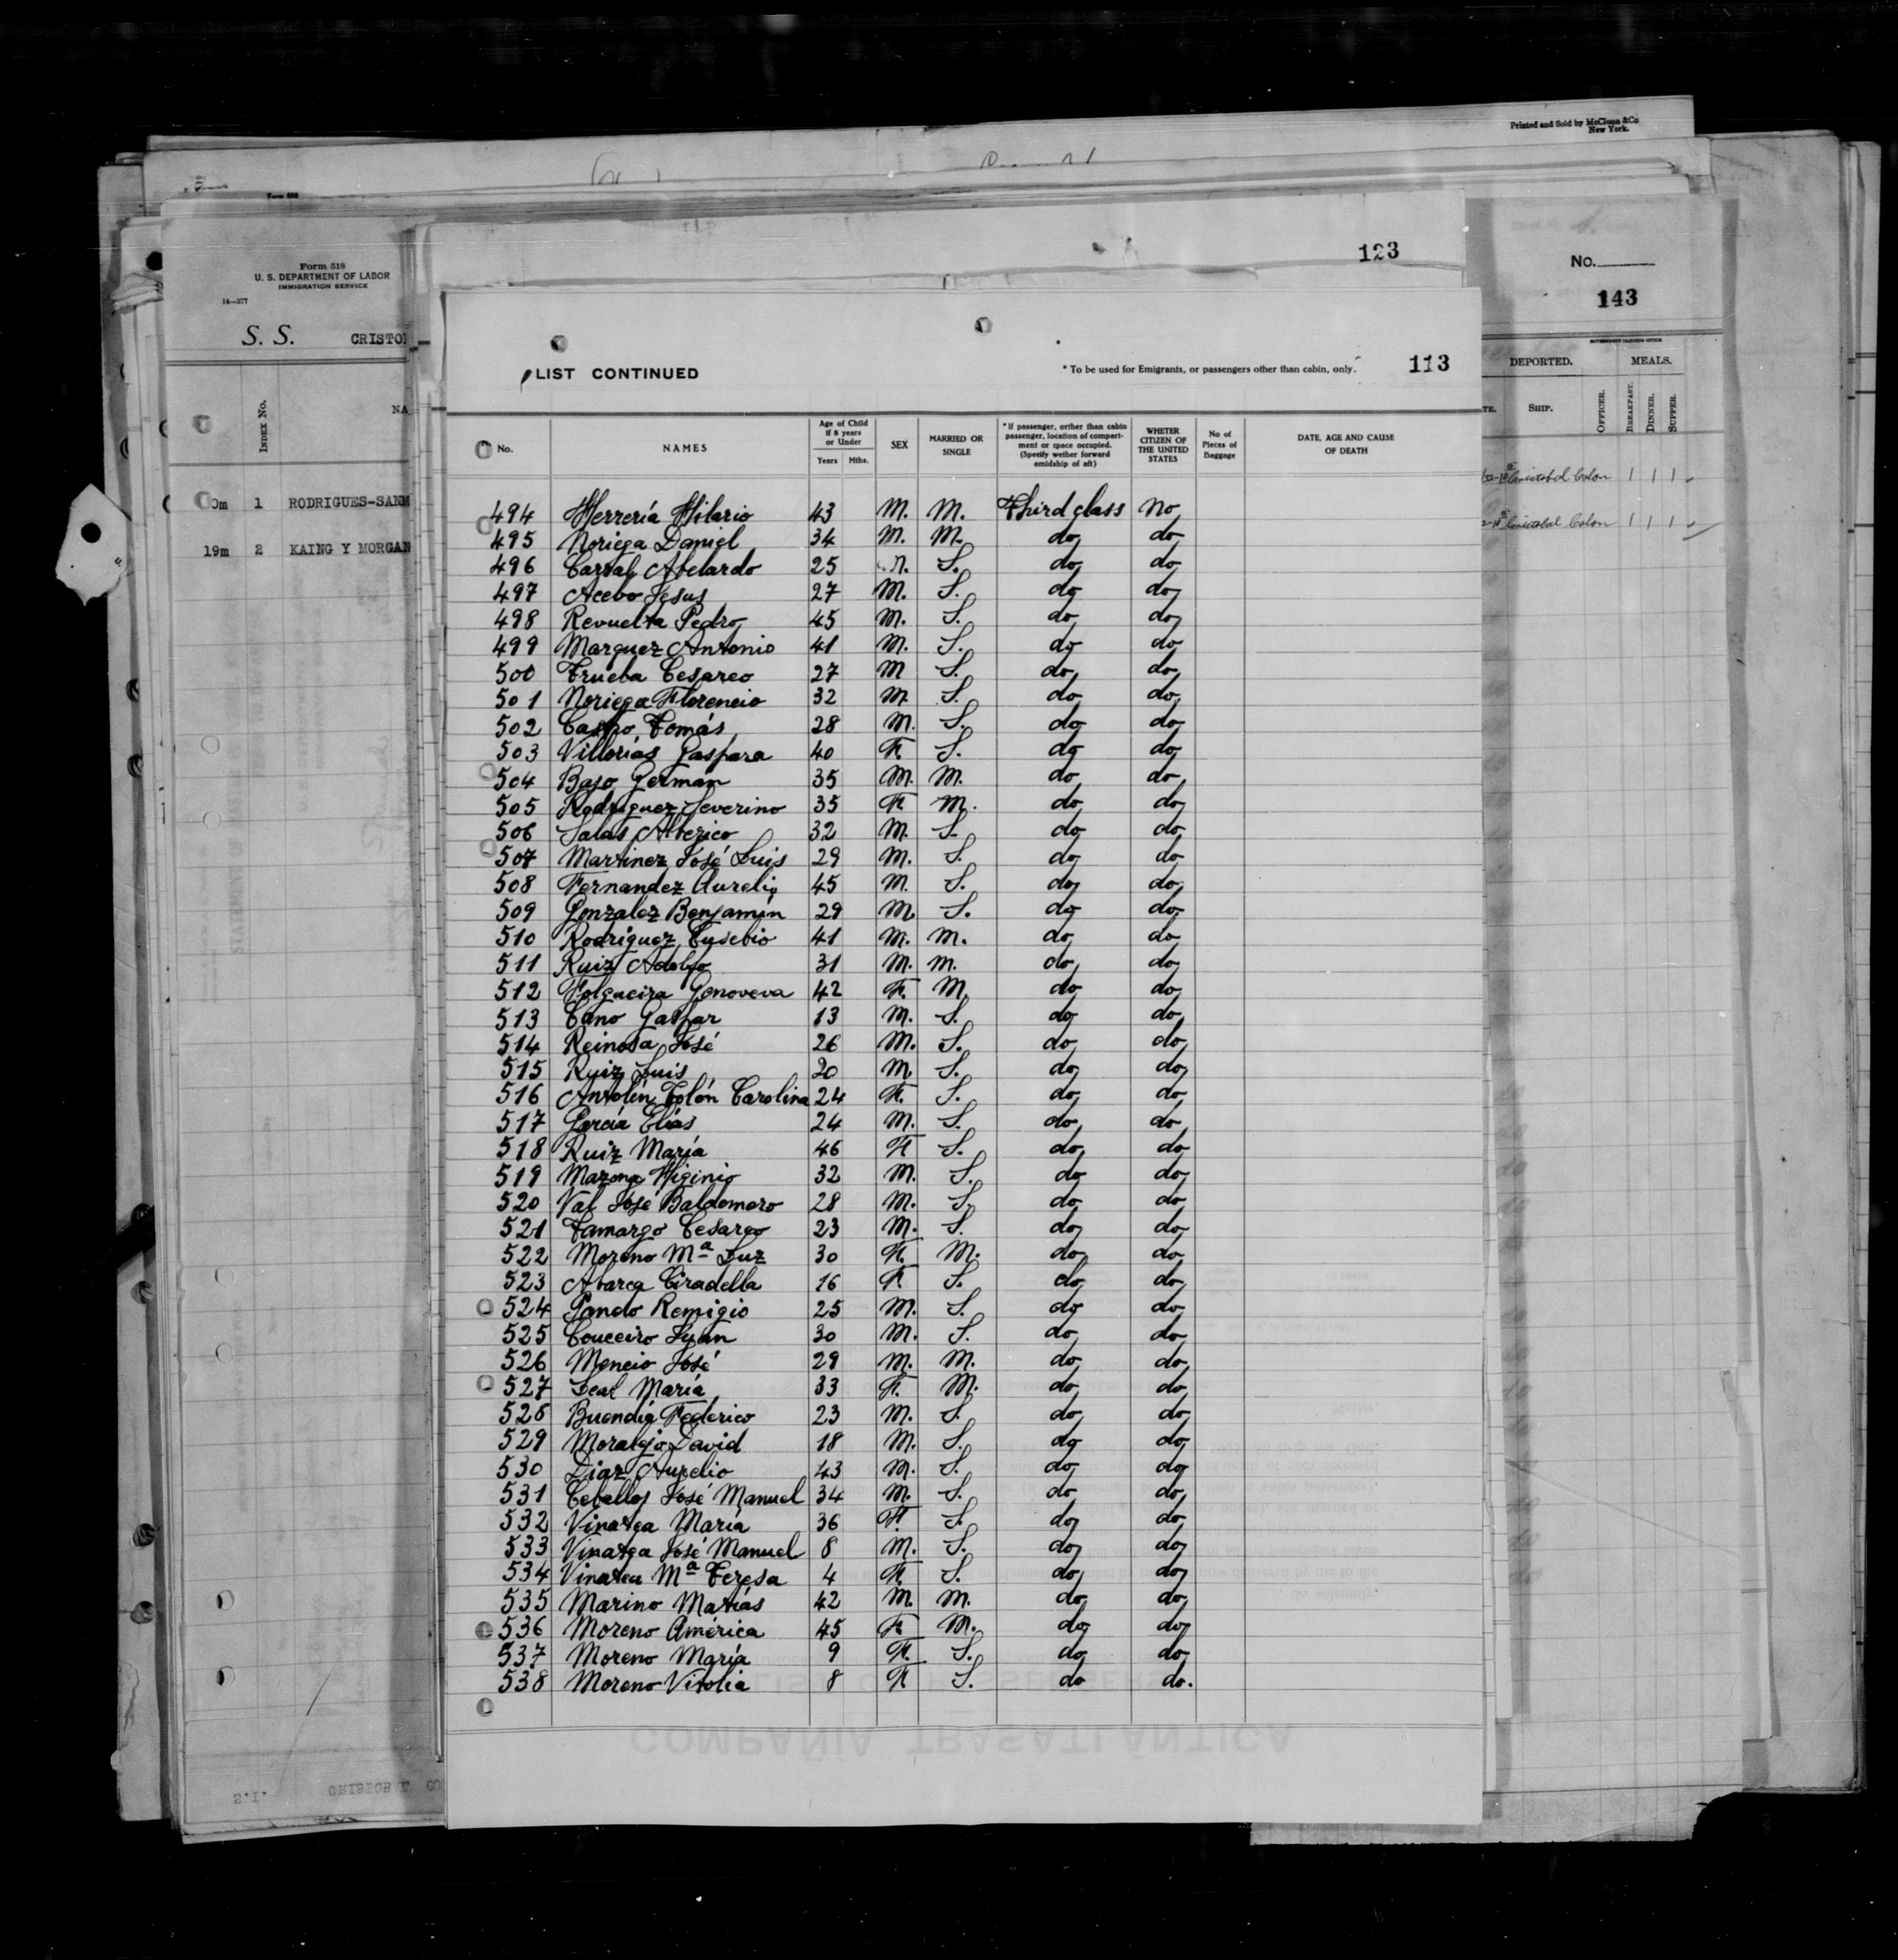 Printed and Sold by McClunn &Co
New York.
123
Form 518
U. S. DEPARTMENT OF LABOR
IMMIGRATION SERVICE
14—377
S. S. CRISTO
INDEX No.
NA
0m 1 RODRIGUES-SANM
19m 2 KAING Y MORGAN
No.
143
DEPORTED. MEALS.
TE. SHIP. OFFICER. BREAKFAST. DINNER. SUPPER.
Cristobal Colon 1 1 1
Cristobal Colon 1 1 1
LIST CONTINUED
* To be used for Emigrants, or passengers other than cabin, only.
113
No. NAMES Age of Child if 8 years or Under Years Mths. SEX MARRIED OR SINGLE *If passenger, orther than cabin passenger, location of compartment or space occupied. (Specify wether forward amidship of aft) WHETER CITIZEN OF THE UNITED STATES No of Pieces of Baggage DATE, AGE AND CAUSE OF DEATH
494 Herrería Hilario 43 M. M. Third class no
495 Noriega Daniel 34 M. M. do do
496 Carral Abelardo 25 M. S. do do
497 Acebo Jesus 27 M. S. do do
498 Revuelta Pedro 45 M. S. do do
499 Marquez Antonio 41 M. S. do do
500 Trueba Cesareo 27 M S. do do
501 Noriega Florencio 32 M. S. do do
502 Castro Tomás 28 M. S. do do
503 Villorías Gaspara 40 F. S. do do
504 Baso Germán 35 M. M. do do
505 Rodriguez Severino 35 F. M. do do
506 Salas Alberico 32 M. S. do do
507 Martinez José Luis 29 M. S. do do
508 Fernandez Aurelio 45 M. S. do do
509 Gonzalez Benjamín 29 M. S. do do
510 Rodriguez Eusebio 41 M. M. do do
511 Ruiz Adolfo 31 M. M. do do
512 Folgueira Genoveva 42 F. M do do
513 Cano Gaspar 13 M. S. do do
514 Reinosa José 26 M. S. do do
515 Ruiz Luis 20 M S. do do
516 Antolín Tolón Carolina 24 F. S. do do
517 García Elías 24 M. S. do do
518 Ruiz María 46 F S. do do
519 Mazona Higinio 32 M. S. do do
520 Val José Baldomero 28 M. S. do do
521 Tamargo Cesareo 23 M. S. do do
522 Moreno Mª Luz 30 F. M. do do
523 Abarca Ciradella 16 F. S. do do
524 Pando Remigio 25 M. S. do do
525 Couceiro Juan 30 M. S. do do
526 Mencio José 29 M. M. do do
527 Leal María 33 F. M. do do
528 Buendía Federico 23 M. S. do do
529 Moralejo David 18 M. S. do do
530 Diaz Aurelio 43 M. S. do do
531 Ceballos José Manuel 34 M. S. do do
532 Vinatea María 36 F. S. do do
533 Vinatea José Manuel 8 M. S. do do
534 Vinatea Mª Teresa 4 F. S. do do
535 Marino Matías 42 M. M. do do
536 Moreno América 45 F. M. do do
537 Moreno María 9 F. S. do do
538 Moreno Vitolia 8 F S. do do.
COMPAÑÍA TRASATLANTICA